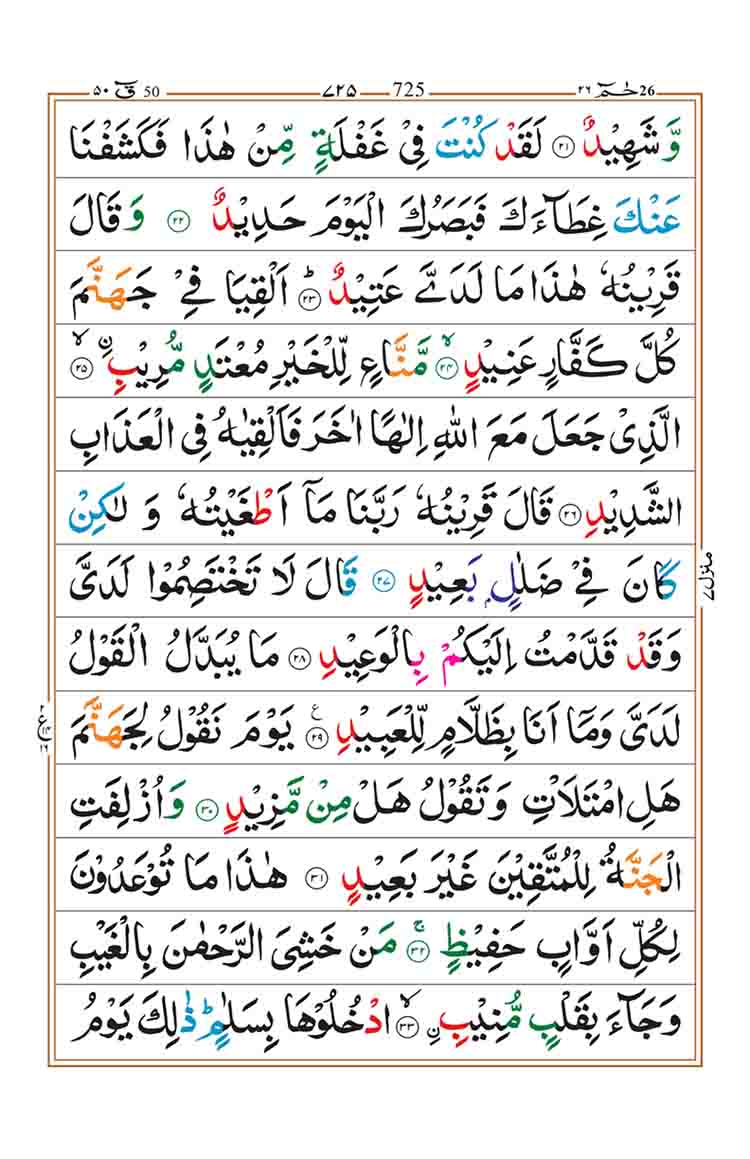 ٥٠ قٓ 50 ٧٢٥ 725 ٢٦ حٰمٓ 26
وَّشَهِيْدٌ ﴿٢١﴾ لَقَدْ كُنْتَ فِيْ غَفْلَةٍ مِّنْ هٰذَا فَكَشَفْنَا
عَنْكَ غِطَآءَكَ فَبَصَرُكَ الْيَوْمَ حَدِيْدٌ ﴿٢٢﴾ وَقَالَ
قَرِيْنُهٗ هٰذَا مَا لَدَيَّ عَتِيْدٌ ﴿٢٣﴾ؕ اَلْقِيَا فِيْ جَهَنَّمَ
كُلَّ كَفَّارٍ عَنِيْدٍ ﴿٢٤﴾ۙ مَّنَّاعٍ لِّلْخَيْرِ مُعْتَدٍ مُّرِيْبِ ۨ ﴿٢٥﴾ۙ
الَّذِيْ جَعَلَ مَعَ اللّٰهِ اِلٰهًا اٰخَرَ فَاَلْقِيٰهُ فِي الْعَذَابِ
الشَّدِيْدِ ﴿٢٦﴾ قَالَ قَرِيْنُهٗ رَبَّنَا مَآ اَطْغَيْتُهٗ وَ لٰكِنْ
كَانَ فِيْ ضَلٰلٍۭ بَعِيْدٍ ﴿٢٧﴾ قَالَ لَا تَخْتَصِمُوْا لَدَيَّ
وَقَدْ قَدَّمْتُ اِلَيْكُمْ بِالْوَعِيْدِ ﴿٢٨﴾ مَا يُبَدَّلُ الْقَوْلُ
لَدَيَّ وَمَآ اَنَا بِظَلَّامٍ لِّلْعَبِيْدِ ﴿٢٩﴾ ع يَوْمَ نَقُوْلُ لِجَهَنَّمَ
هَلِ امْتَلَاْتِ وَ تَقُوْلُ هَلْ مِنْ مَّزِيْدٍ ﴿٣٠﴾ وَاُزْلِفَتِ
الْجَنَّةُ لِلْمُتَّقِيْنَ غَيْرَ بَعِيْدٍ ﴿٣١﴾ هٰذَا مَا تُوْعَدُوْنَ
لِكُلِّ اَوَّابٍ حَفِيْظٍ ﴿٣٢﴾ۚ مَنْ خَشِيَ الرَّحْمٰنَ بِالْغَيْبِ
وَجَآءَ بِقَلْبٍ مُّنِيْبِ ﴿٣٣﴾ۙ ۨ ادْخُلُوْهَا بِسَلٰمٍ ؕ ذٰلِكَ يَوْمُ
منزل٧